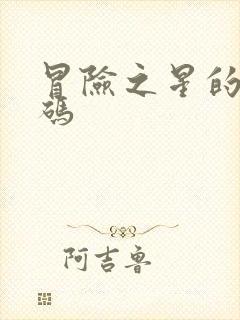 冒險之星的
碼
阿吉魯